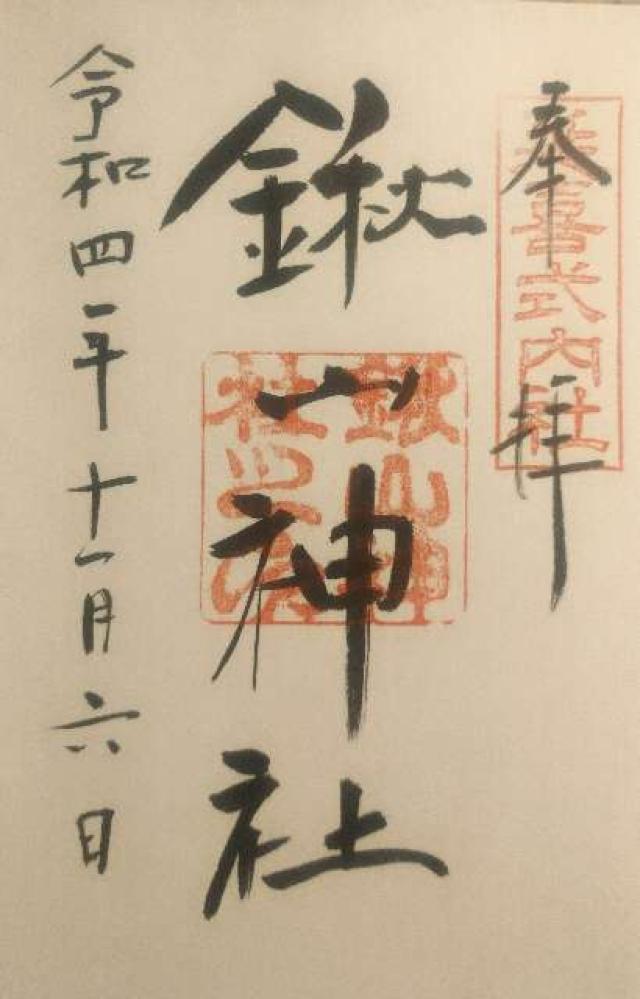 奉拝
延喜式内社
鍬山神社
鍬山神
社之印
令和四年十一月六日